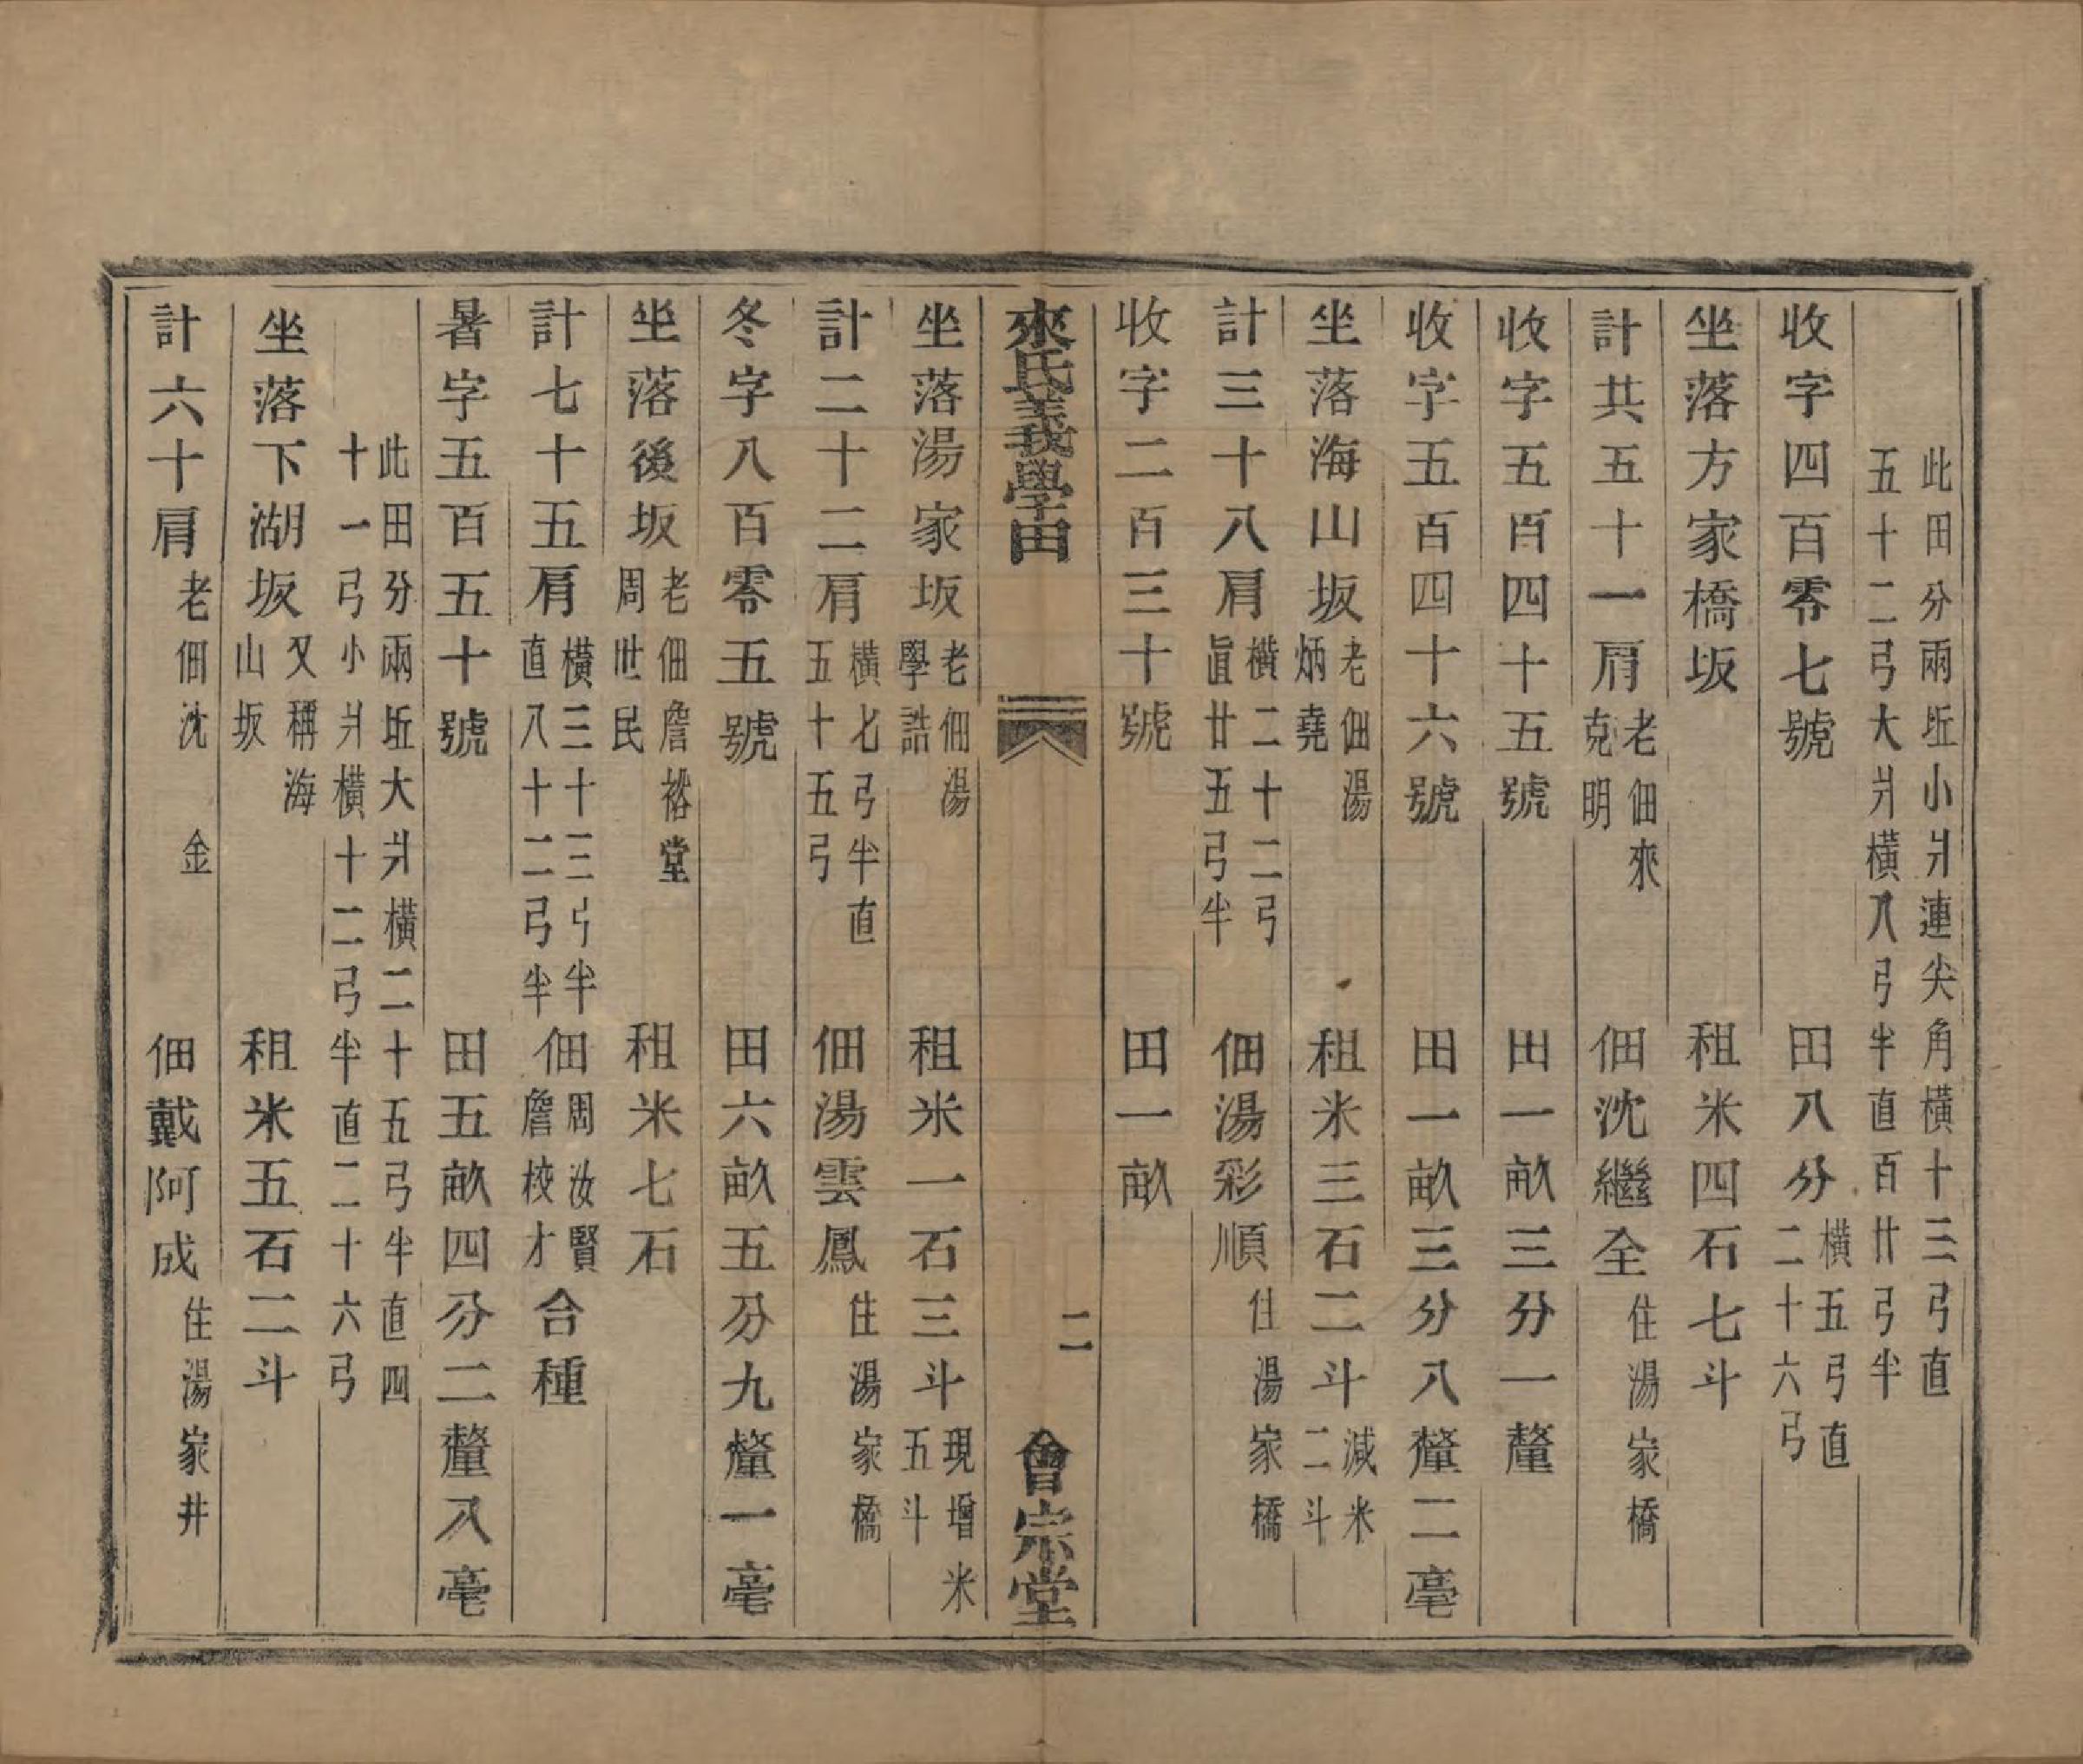 此田分兩坵小爿連尖角橫十三弓直
五十二弓大爿橫八弓半直百廿弓半
收字四百零七號　田八分　橫五弓直二十六弓
坐落方家橋坂　租米四石七斗
計共五十一肩　老佃來克明　佃沈繼全　住湯家橋
收字五百四十五號　田一畝三分一釐
收字五百四十六號　田一畝三分八釐二毫
坐落海山坂　老佃湯炳堯　租米三石二斗　減米二斗
計三十八肩　橫二十二弓直廿五弓半　佃湯彩順　住湯家橋
收字二百三十號　田一畝
來氏義學田　二　會宗堂
坐落湯家坂　老佃湯學誥　租米一石三斗　現增米五斗
計二十二肩　橫七弓半直五十五弓　佃湯雲鳳　住湯家橋
冬字八百零五號　田六畝五分九釐一毫
坐落後坂　老佃詹裕堂周世民　租米七石
計七十五肩　橫三十三弓半直八十二弓半　佃周汝賢詹校才合種
暑字五百五十號　田五畝四分二釐八毫
此田分兩坵大爿橫二十五弓半直四
十一弓小爿橫十二弓半直二十六弓
坐落下湖坂　又稱海山坂　租米五石二斗
計六十肩　老佃沈　金　佃戴阿成　住湯家井